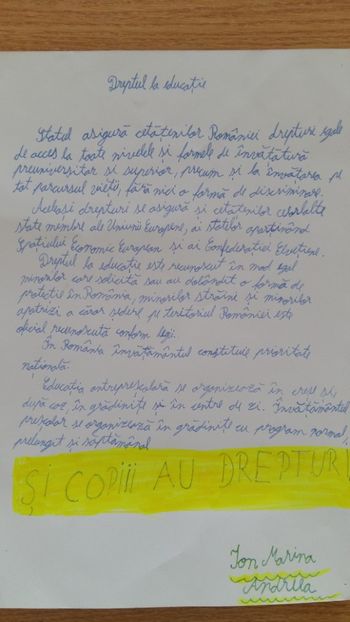 Dreptul la educație
Statul asigură cetățenilor României drepturi egale
de acces la toate nivelele și formele de învățătură
preuniversitar și superior, precum și la învățarea pe
tot parcursul vieții, fără nici o formă de discriminare.
Aceleași drepturi se asigură și cetățenilor celorlalte
state membre ale Uniunii Europene, ai statelor aparținând
Spațiului Economic European și ai Confederației Elvețiene.
Dreptul la educație este recunoscut în mod egal
minorilor care solicită sau au dobândit o formă de
protecție în România, minorilor străini și minorilor
apatrizi a căror ședere pe teritoriul României este
oficial recunoscută conform legii.
În România învățământul constituie prioritate
națională.
Educația antepreșcolară se organizează în creșe și,
după caz, în grădinițe și în centre de zi. Învățământul
preșcolar se organizează în grădinițe cu program normal,
prelungit și săptămânal
ȘI COPIII AU DREPTURI
Ion Marina
Andreea